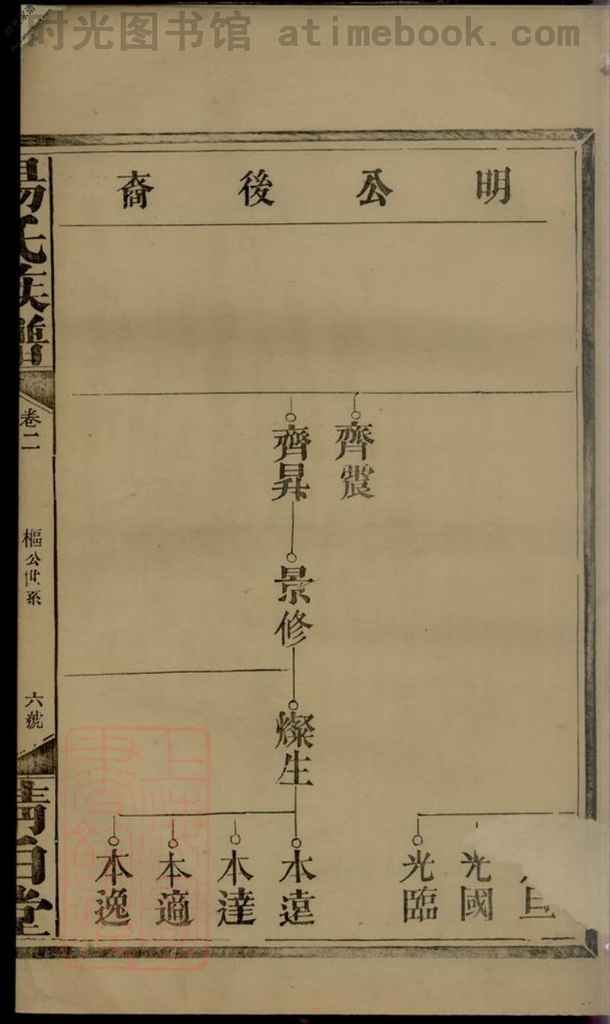 时光图书馆 atimebook.com
明公後裔
齊震
齊昇
景修
燦生
光國
光臨
本遠
本達
本適
本逸
楊氏族譜
卷二
樞公世系
六號
清白堂